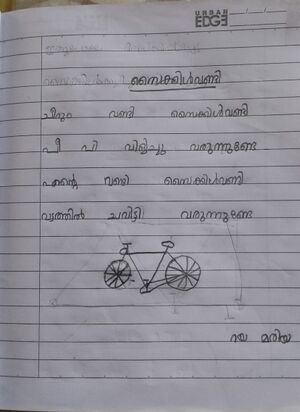 URBAN
EDGE
സൈക്കിൾവണ്ടി
വണ്ടി സൈക്കിൾവണ്ടി
പീ പി വിളിച്ചു വരുന്നുണ്ടേ
എന്റെ വണ്ടി സൈക്കിൾവണ്ടി
വട്ടത്തിൽ ചവിട്ടി വരുന്നുണ്ടേ
റയ മരിയ